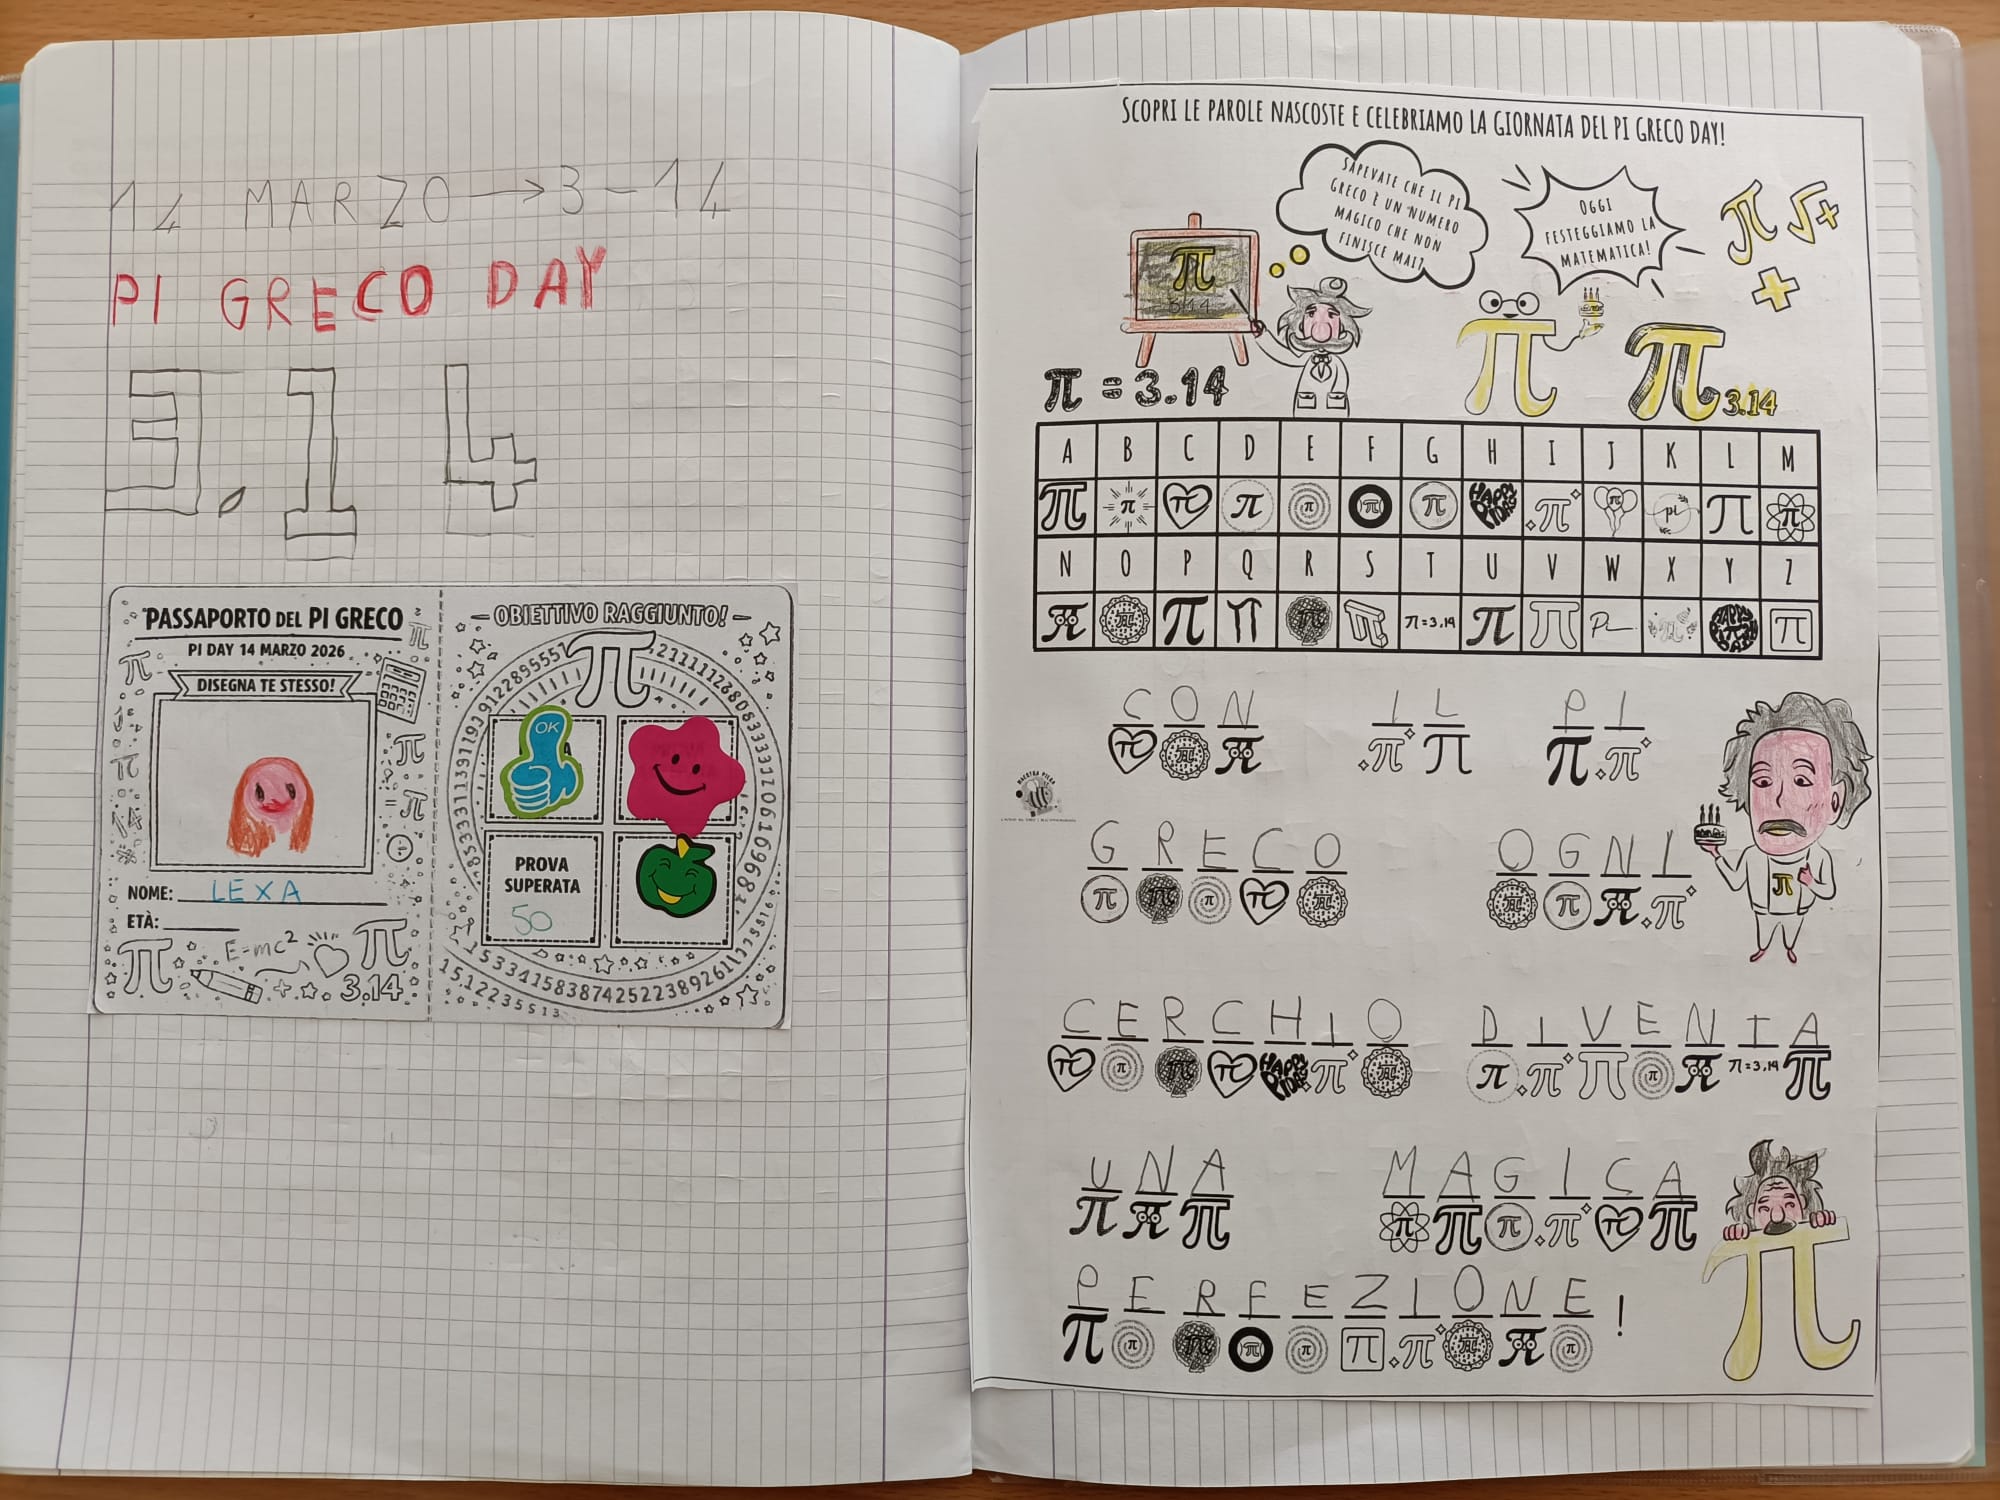 14 MARZO → 3-14
PI GRECO DAY
3.14
PASSAPORTO DEL PI GRECO
PI DAY 14 MARZO 2026
DISEGNA TE STESSO!
NOME: LEXA
ETÀ:
E=mc²
3.14
OBIETTIVO RAGGIUNTO!
π
OK
PROVA
SUPERATA
50
SCOPRI LE PAROLE NASCOSTE E CELEBRIAMO LA GIORNATA DEL PI GRECO DAY!
SAPEVATE CHE IL PI
GRECO È UN NUMERO
MAGICO CHE NON
FINISCE MAI?
OGGI
FESTEGGIAMO LA
MATEMATICA!
π √+
+
π
3.14
π = 3.14
π 3.14
A B C D E F G H I J K L M
N O P Q R S T U V W X Y Z
CON IL PI
GRECO OGNI
CERCHIO DIVENIA
UNA MAGICA
PERFEZIONE!